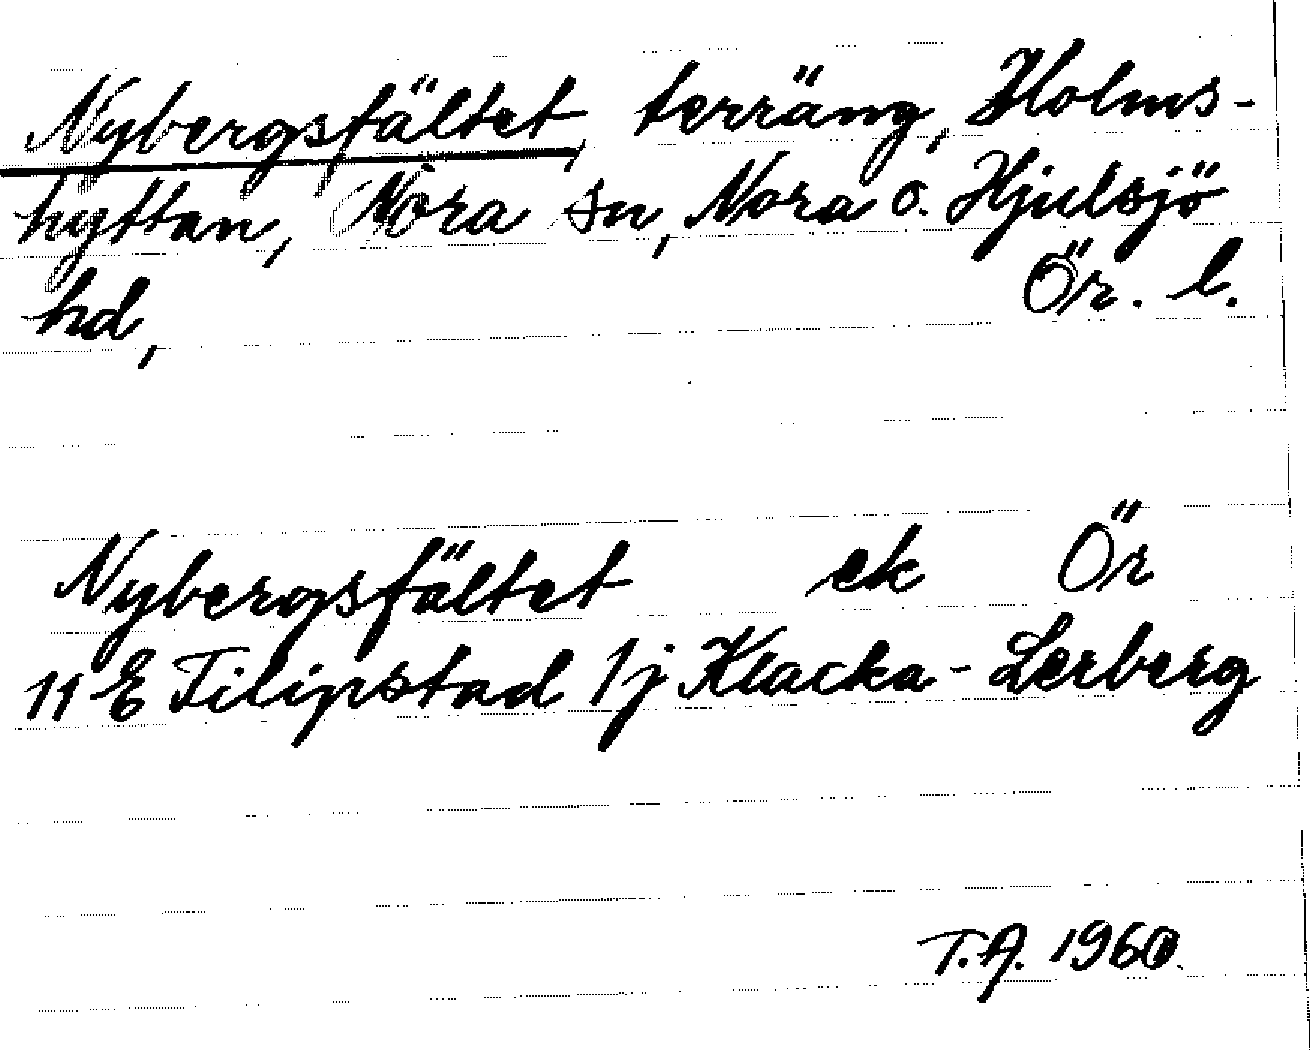 Nybergsfältet, terräng, Holms-
hyttan, Nora sn, Nora o. Hjulsjö
hd, Ör. l.
Nybergsfältet ek Ör
11 E Filipstad 1j Klacka-Lerberg
T.A. 1960.